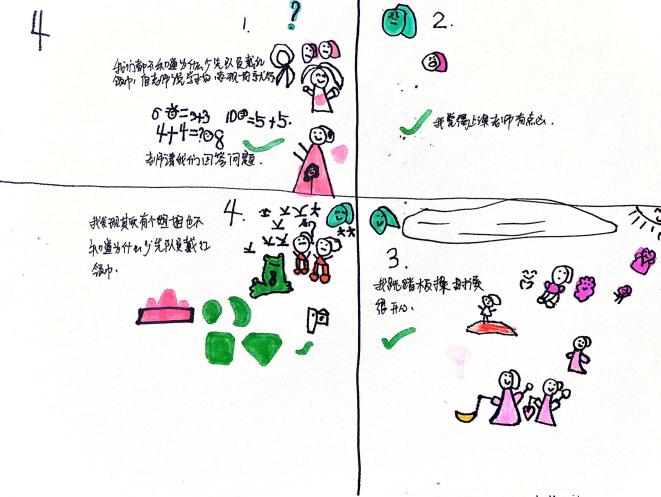 4
1.
?
我们都不知道为什么少先队员戴红
领巾,
6 =3+3 10 =5+5.
4+4= 8
老师请我们回答问题.
2.
我觉得上课老师有点凶.
4.
我发现其实有个姐姐也不
知道为什么少先队员戴红
领巾.
3.
我跳踏板操
很开心.